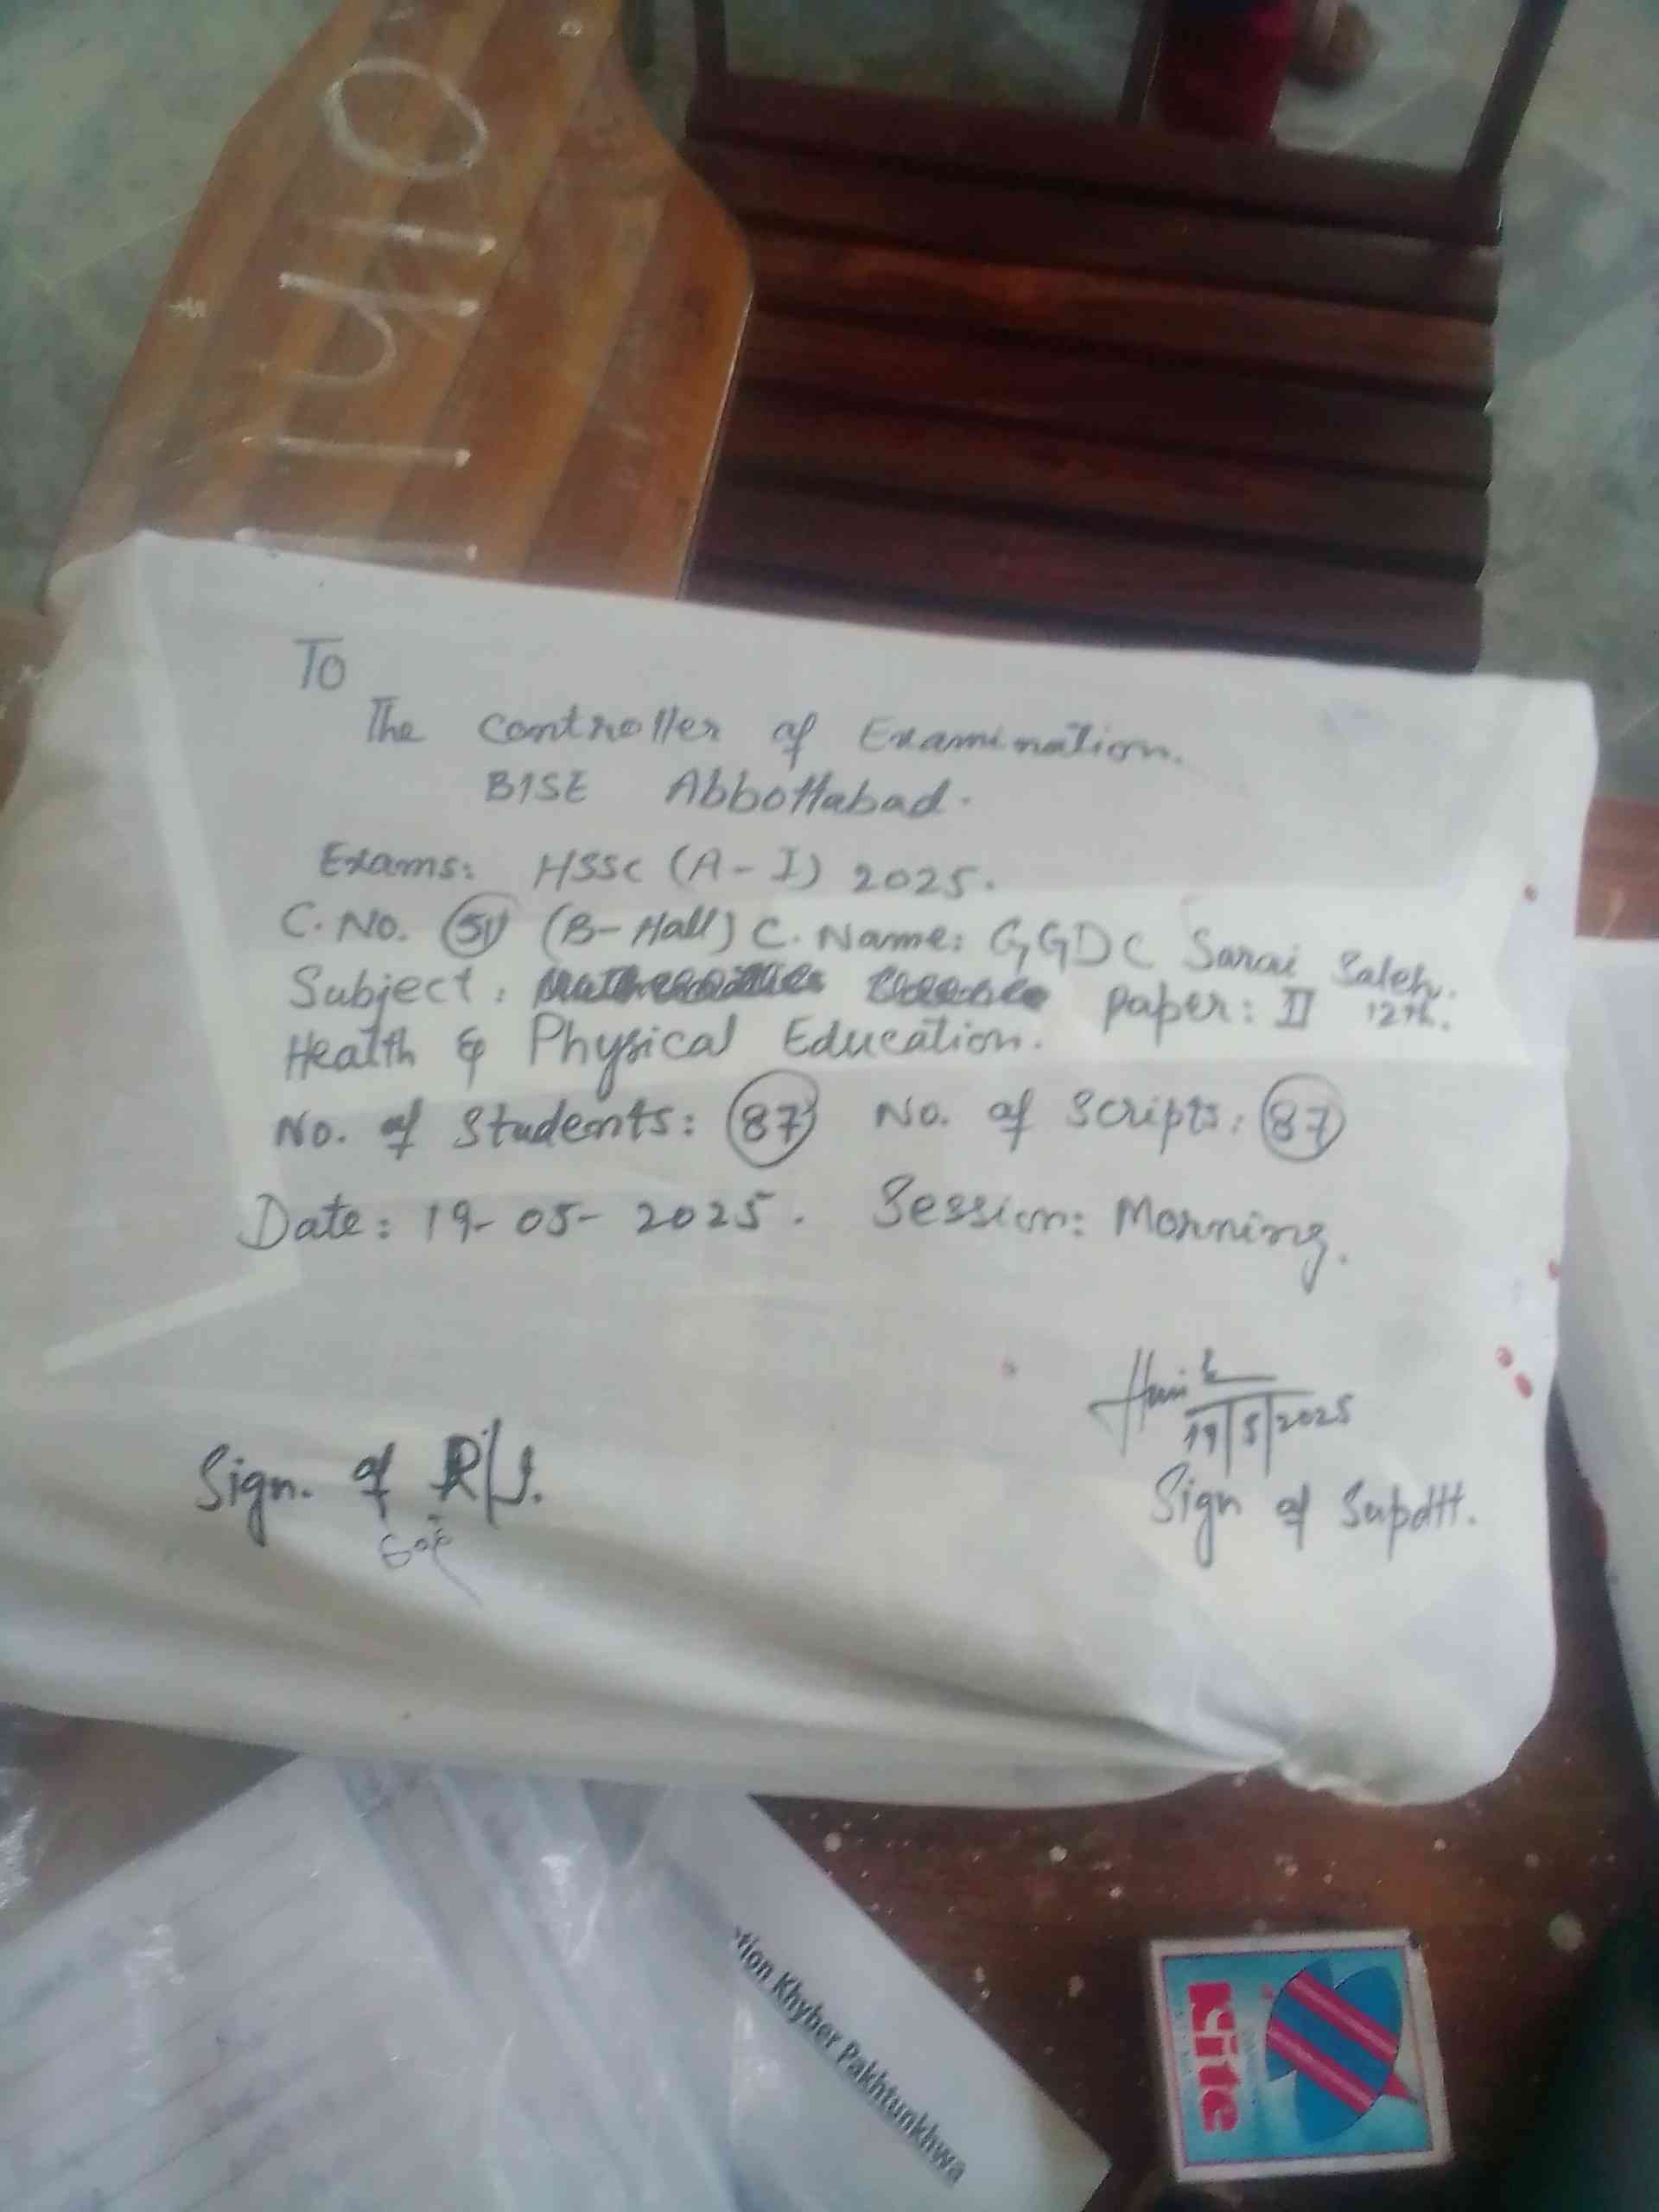 To
The Controller of Examination.
BISE Abbottabad.
Exams: HSSC (A-I) 2025.
C. No. 51 (B-Hall) C. Name: GGDC Sarai Saleh.
Subject: Paper: II 12th.
Health & Physical Education.
No. of Students: 87 No. of Scripts: 87
Date: 19-05-2025. Session: Morning.
19/5/2025
Sign. of R/I.
Sign of Supdtt.
tion Khyber Pakhtunkhwa
Kite